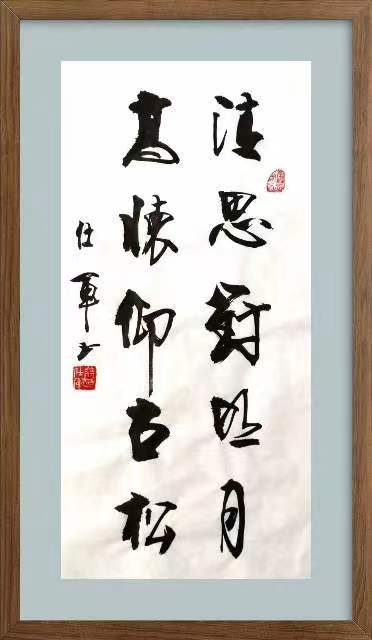 清思對明月
高懷仰古松
仕軍书